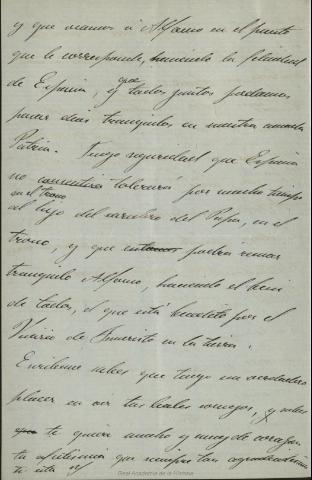 y que veamos á Alfonso en el puesto
que le corresponde, haciendo la felicidad
de España, y que todos juntos podamos
pasar dias tranquilos en nuestra amada
Patria. Tengo seguridad que España
no consentira tolerará por mucho tiempo
en el trono
al hijo del carcelero del Papa, en el
trono, y que entonces podrá reinar
tranquilo Alfonso, haciendo el bien
de todos, el que está bendito por el
Vicario de Jesucristo en la tierra.
Escribeme sabes que tengo un verdadero
placer en oir tus leales consejos, y sabes
que te quiere mucho y muy de corazon
tu afectisima que siempre tan agradecida
te está
Real Academia de la Historia